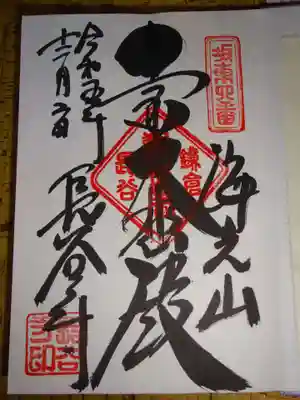 坂東第四番
海光山
大悲殿
鎌倉
長谷
令和五年
十二月
長谷寺
長谷寺印